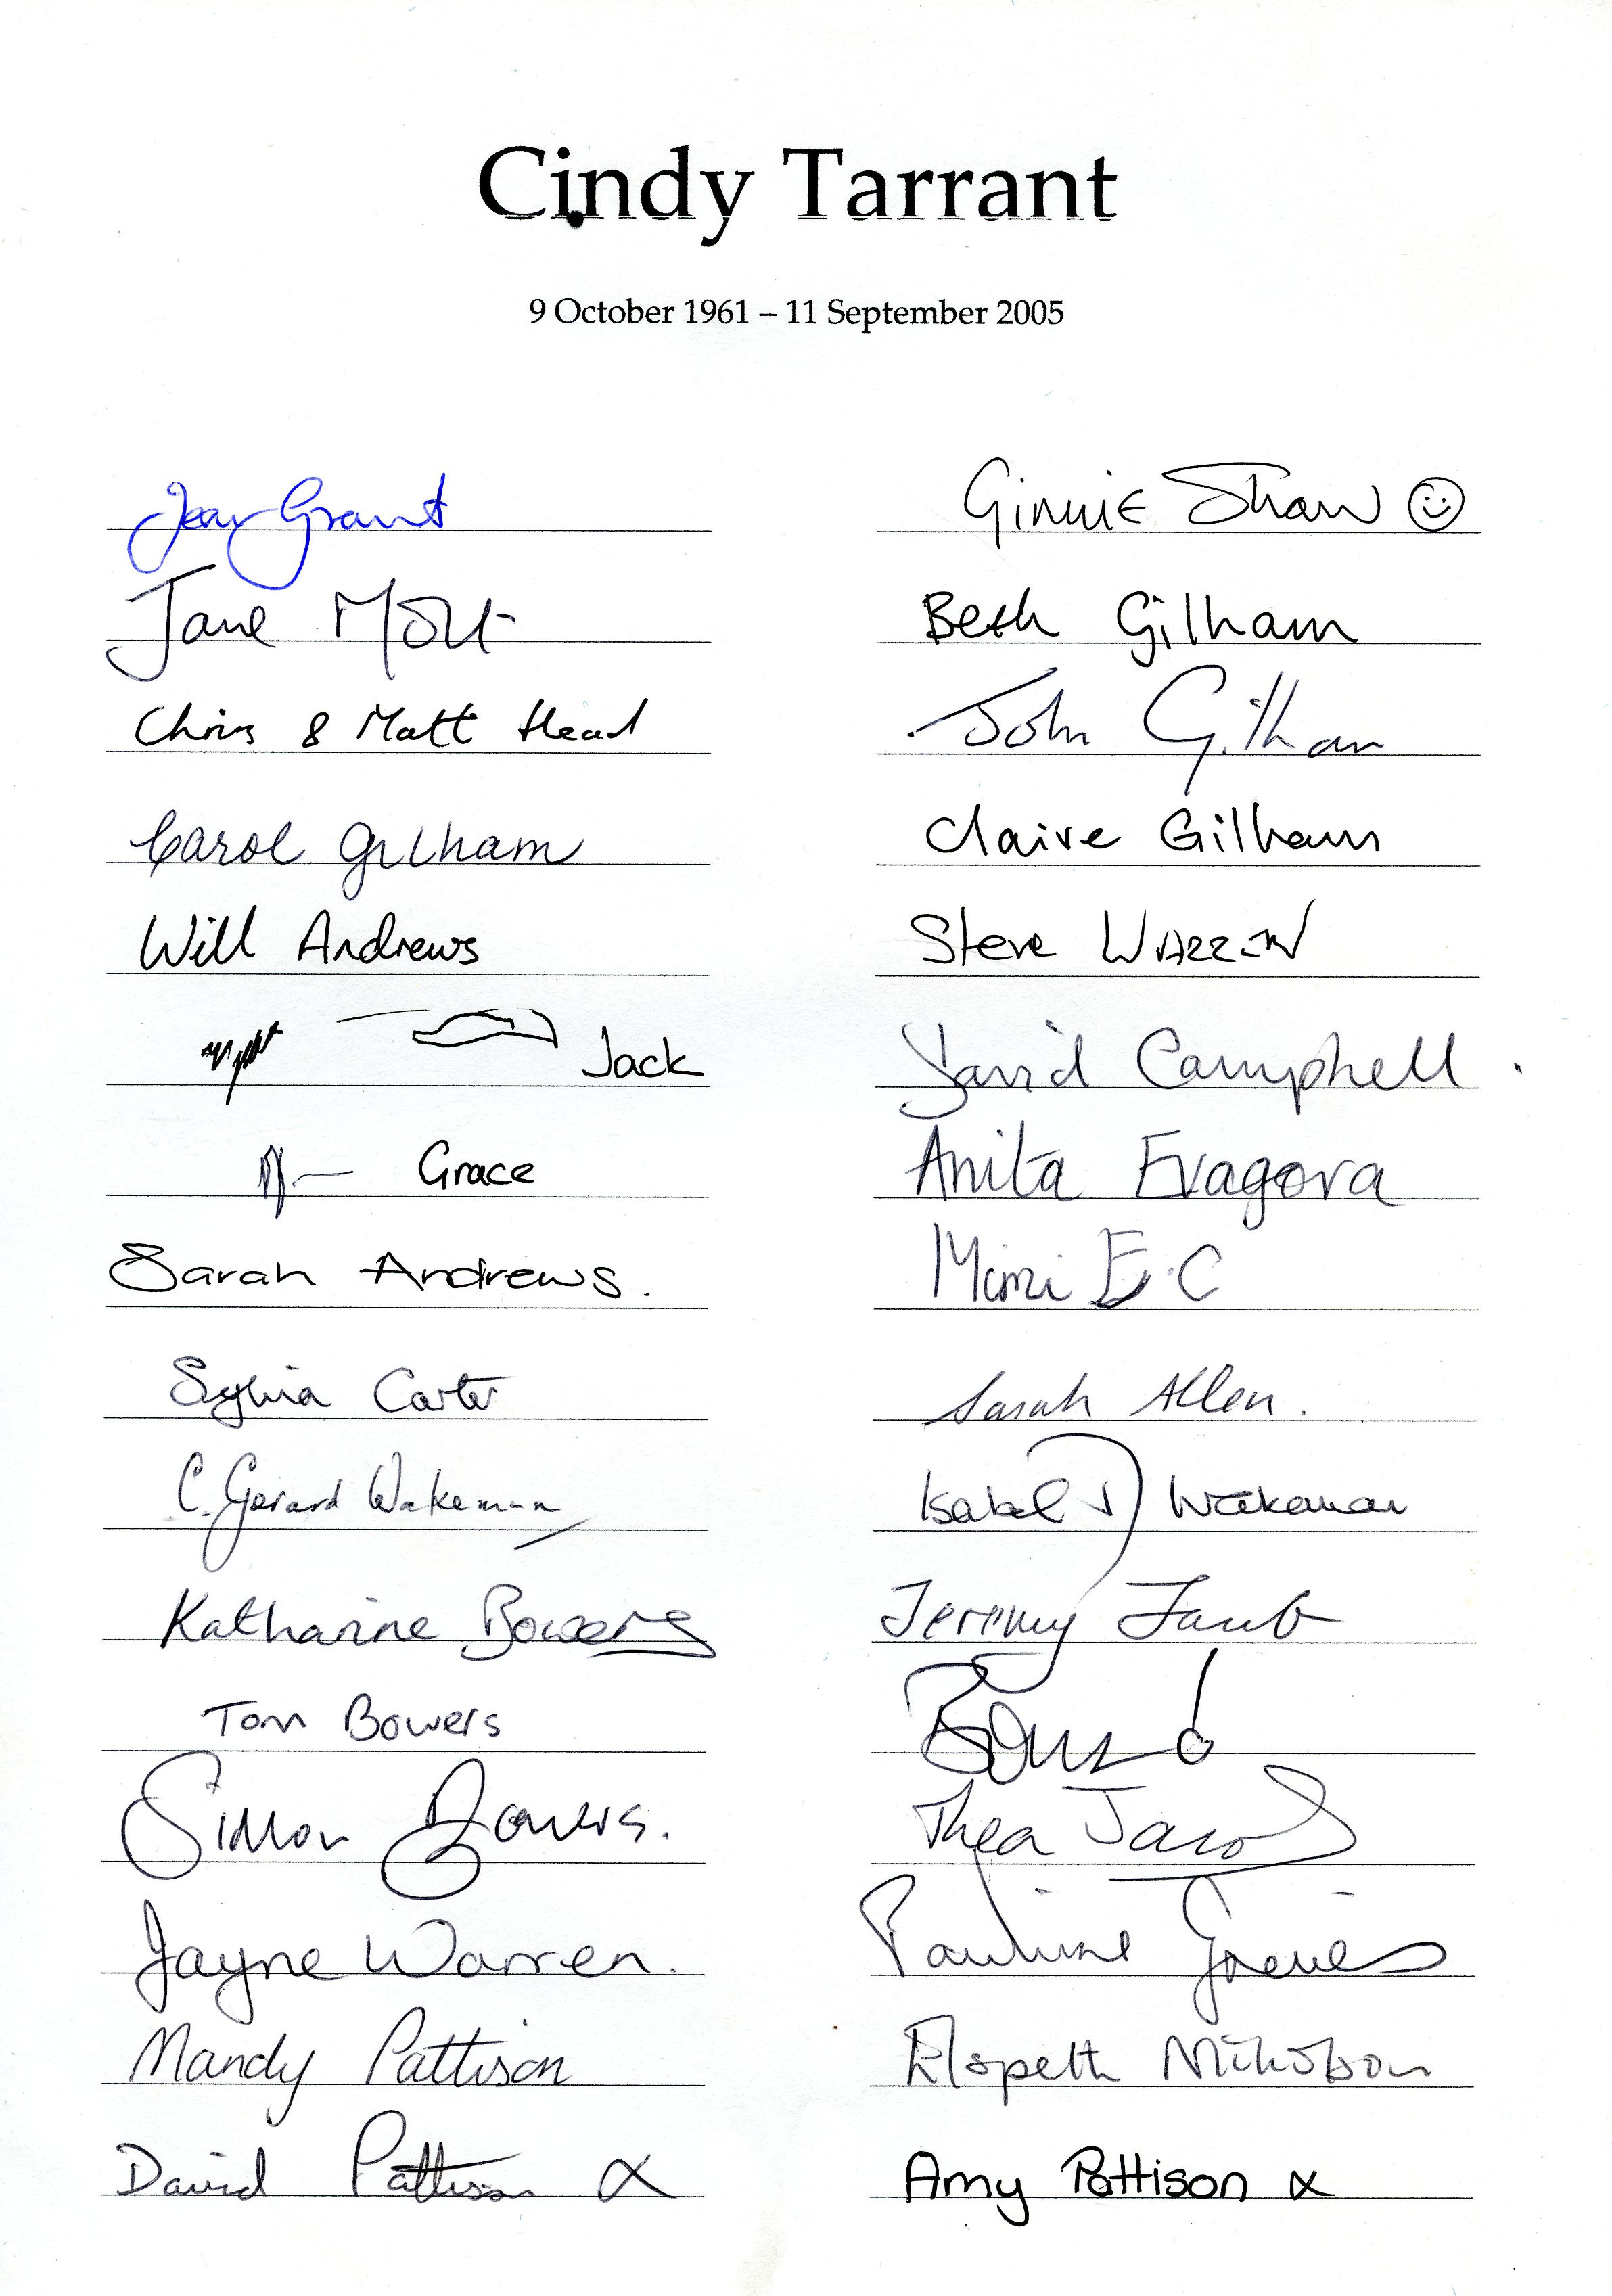 Cindy Tarrant
9 October 1961 – 11 September 2005
Jean Grant
Jane Mott
Chris & Matt Head
Carol Gilham
Will Andrews
Jack
Grace
Sarah Andrews.
Sylvia Carter
C. Gerard Wakeman
Katharine Bowers
Tom Bowers
Simon Bowers.
Jayne Warren.
Mandy Pattison
David Pattison x
Ginnie Shaw
Beth Gilham
John Gilham
Claire Gilham
Steve Warren
David Campbell
Anita Evagora
Mimi E.C
Sarah Allen.
Isabel Wakeman
Jeremy
Thea Jacob
Pauline
Elspeth Nicholson
Amy Pattison x